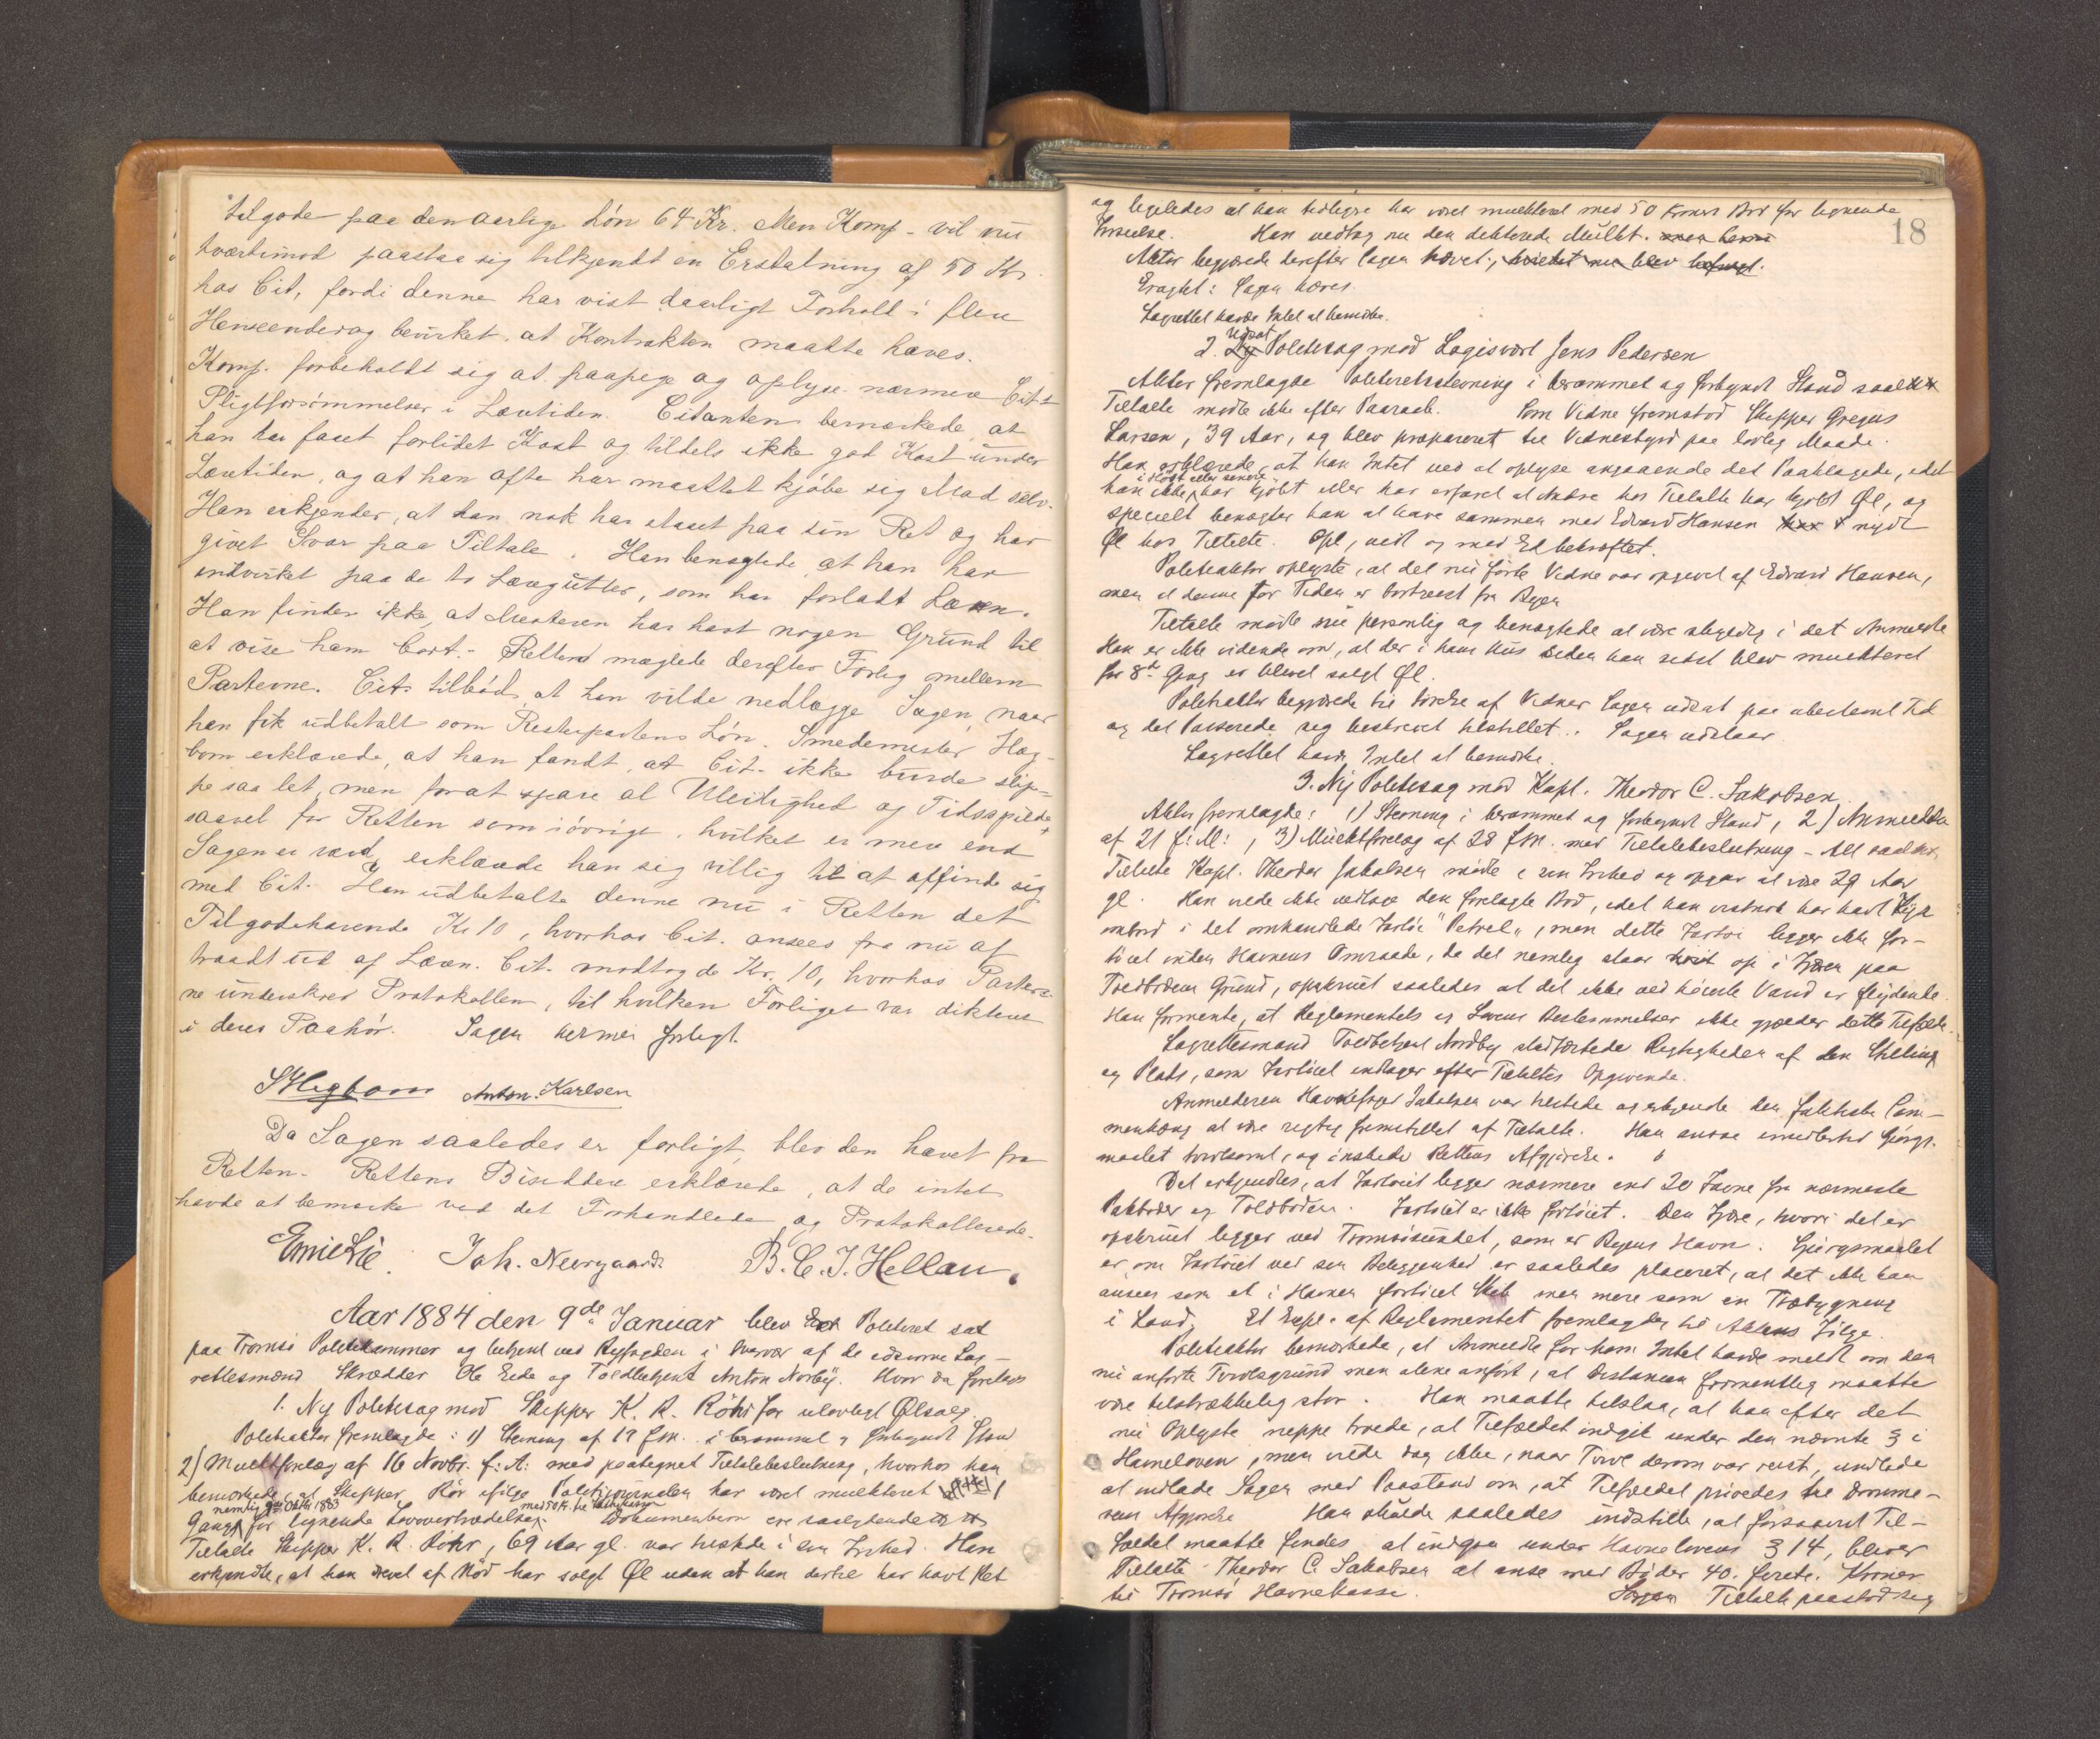 tilgode paa den aarlige Løn 64 Kr. Men Komp. vil nu
tværtimod paastaa sig tilkjendt en Erstatning af 50 Kr.
hos Cit, fordi denne har vist daarligt Forhold i flere
Henseender og bevirket, at Kontrakten maatte hæves.
Komp. forbeholdt sig at paapege og oplyse nærmere Cit.s
Pligtforsømmelser i Læretiden. Citanten bemærkede, at
han har faaet forlidet Kost og tildels ikke god Kost under
Læretiden, og at han ofte har maattet kjøbe sig Mad selv.
Han erkjender, at han nok har staaet paa sin Ret og har
givet Svar paa Tiltale. Han benægtede, at han har
indvirket paa de to Læregutter, som har forladt Læren.
Han finder ikke, at Mesteren har havt nogen Grund til
at vise ham bort. - Retten mæglede derefter Forlig mellem
Parterne. Cit. tilbød, at han vilde nedlægge Sagen, naar
han fik udbetalt som Resterpartens Løn. Smedemester Hæg-
bom erklærede, at han fandt, at Cit. ikke burde slip-
pe saa let, men for at spare al Uleilighed og Tidsspilde,
saavel for Retten som iøvrigt, hvilket er mere end
Sagen er værd, erklærede han sig villig til at affinde sig
med Cit. Han udbetalte denne nu i Retten det
Tilgodehavende Kr 10, hvorhos Cit. ansees fra nu af
traadt ud af Læren. Cit. modtog de Kr. 10, hvorhos Parter-
ne underskrev Protokollen, til hvilken Forliget var dikteret
i deres Paahør. Sagen hermed forligt.
Hægbom Anton. Karlsen
Da Sagen saaledes er forligt, blev den hævet fra
Retten. Rettens Bisiddere erklærede, at de intet
havde at bemærke ved det Forhandlede og Protokollerede.
Joh. Neergaard. B. C. J. Hellan.
Aar 1884 den 9de Januar blev Politiret sat
paa Tromsø Politikammer og betjent ved Byfogden i Nærvær af de edsvorne Lag-
rettesmænd Skrædder Ole Eide og Toldbetjent Anton Norby. Hvor da foretoges
1. Ny Politisag mod Skipper K. R. Röhr for ulovligt Ølsalg.
Politiaktor fremlagde: 1) Stevning af 19 f.M. i berammet og forkyndt Stand
2) Mulktforelæg af 16 Novbr. f: A: med paategnet Tiltalebeslutning, hvorhos han
bemærkede, at Skipper Röhr ifølge Politijournalen har været mulkteret 1
nemlig Oktbr 1883 med 50 Kr. til
Gang for lignende Lovovertrædelse. Dokumenterne ere saalydende
Tiltalte Skipper K. R. Röhr, 69 Aar gl. var tilstede i sin Frihed. Han
erkjendte, at han drevet af Nød har solgt Øl uden at han dertil har havt Ret
18
og ligeledes at han tidligere har været mulkteret med 50 Kroners Bod for lignende
Forseelse. Han vedtog nu den dikterede Mulkt.
Aktor begjærede derefter Sagen hævet, hvilket nu blev
Eragtet: Sagen hæves.
Lagrettet havde Intet at bemærke.
Udsat
2. Politisag mod Logisvært Jens Pedersen
Aktor fremlagde Politiretsstevning i berammet og forkyndt Stand saal
Tiltalte mødte ikke efter Paaraab. Som Vidne fremstod Skipper Gregus
Larsen, 39 Aar, og blev præpareret til Vidnesbyrd paa lovlig Maade.
Han erklærede, at han Intet ved at oplyse angaaende det Paaklagede, idet
i Høst eller senere
han ikke har kjøbt eller har erfaret at Andre hos Tiltalte har kjøbt Øl, og
specielt benægter han at have sammen med Edvard Hansen nydt
Øl hos Tiltalte. Opl, vedt og med Ed bekræftet.
Politiaktor oplyste, at det nu førte Vidne var opgivet af Edvard Hansen,
men at denne for Tiden er bortreist fra Byen
Tiltalte mødte nu personlig og benægtede at være skyldig i det Anmeldte
Han er ikke vidende om, at der i hans Hus siden han sidst blev mulkteret
for 8de Gang er blevet solgt Øl.
Politiaktor begjærede til Førelse af Vidner Sagen udsat paa ubestemt Tid
og det Passerede sig beskrevet tilstillet. Sagen udstaar.
Lagrettet havde Intet at bemærke.
3. Ny Politisag mod Kapt. Theodor C. Jakobsen.
Aktor fremlagde: 1) Stevning i berammet og forkyndt Stand, 2) Anmeldelse
af 21 f: M:, 3) Mulktforelæg af 28 f.M. med Tiltalebeslutning - Alt saal.
Tiltalte Kapt. Theodor Jakobsen mødte i sin Frihed og opgav at være 29 Aar
gl. Han vilde ikke vedtage den forelagte Bod, idet han vistnok har havt
ombord i det omhandlede Fartøi "Petrel", men dette Fartøi ligger ikke for-
tøiet inden Havnens Omraade, da det nemlig staar høit op i Fjæren paa
Toldbodens Grund, opskruet saaledes at det ikke ved høieste Vand er flydende.
Han formente, at Reglementets og Lovens Bestemmelser ikke gjælder dette Tilfælde.
Lagrettesmand Toldbetjent Nordby stadfæstede Rigtigheden af den Stilling
og Plads, som Fartøiet indtager efter Tiltaltes Opgivende.
Anmelderen Havnefoged Jakobsen var tilstede og erkjendte den faktiske Sam-
menhæng at være rigtig fremstillet af Tiltalte. Han ansaa imidlertid Spørgs-
maalet tvivlsomt, og ønskede Rettens Afgjørelse.
Det erkjendtes, at Fartøiet ligger nærmere end 20 Favne fra nærmeste
Pakboder og Toldboden. Fartøiet er ikke fortøiet. Den Fjære, hvori det er
opskruet ligger ved Tromsøsundet, som er Byens Havn. Spørgsmaalet
er om Fartøiet ved sin Beliggenhed er saaledes placeret, at det ikke kan
ansees som et i Havnen fortøiet Skib men mere som en Træbygning
i Land. Et Expl. af Reglementet fremlagdes til Aktens Følge.
Politiaktor bemærkede, at Anmeldte for ham Intet havde meldt om den
nu anførte Tvivlsgrund men alene anført, at Distancen formentlig maatte
være tilstrækkelig stor. Han maatte tilstaa, at han efter det
nu Oplyste neppe troede, at Tilfældet indgik under den nævnte § i
Havneloven, men vilde dog ikke, naar Tvivl derom var reist, undlade
at indlade Sagen med Paastand om, at Tilfældet prøvedes til Domme-
rens Afgjørelse Han skulde saaledes indstille, at forsaavidt Til-
fældet maatte findes at indgaa under Havnelovens § 14, bliver
Tiltalte Theodor C. Jakobsen at anse med Bøder 40. fireti. Kroner
til Tromsø Havnekasse. Tiltalte paastod sig